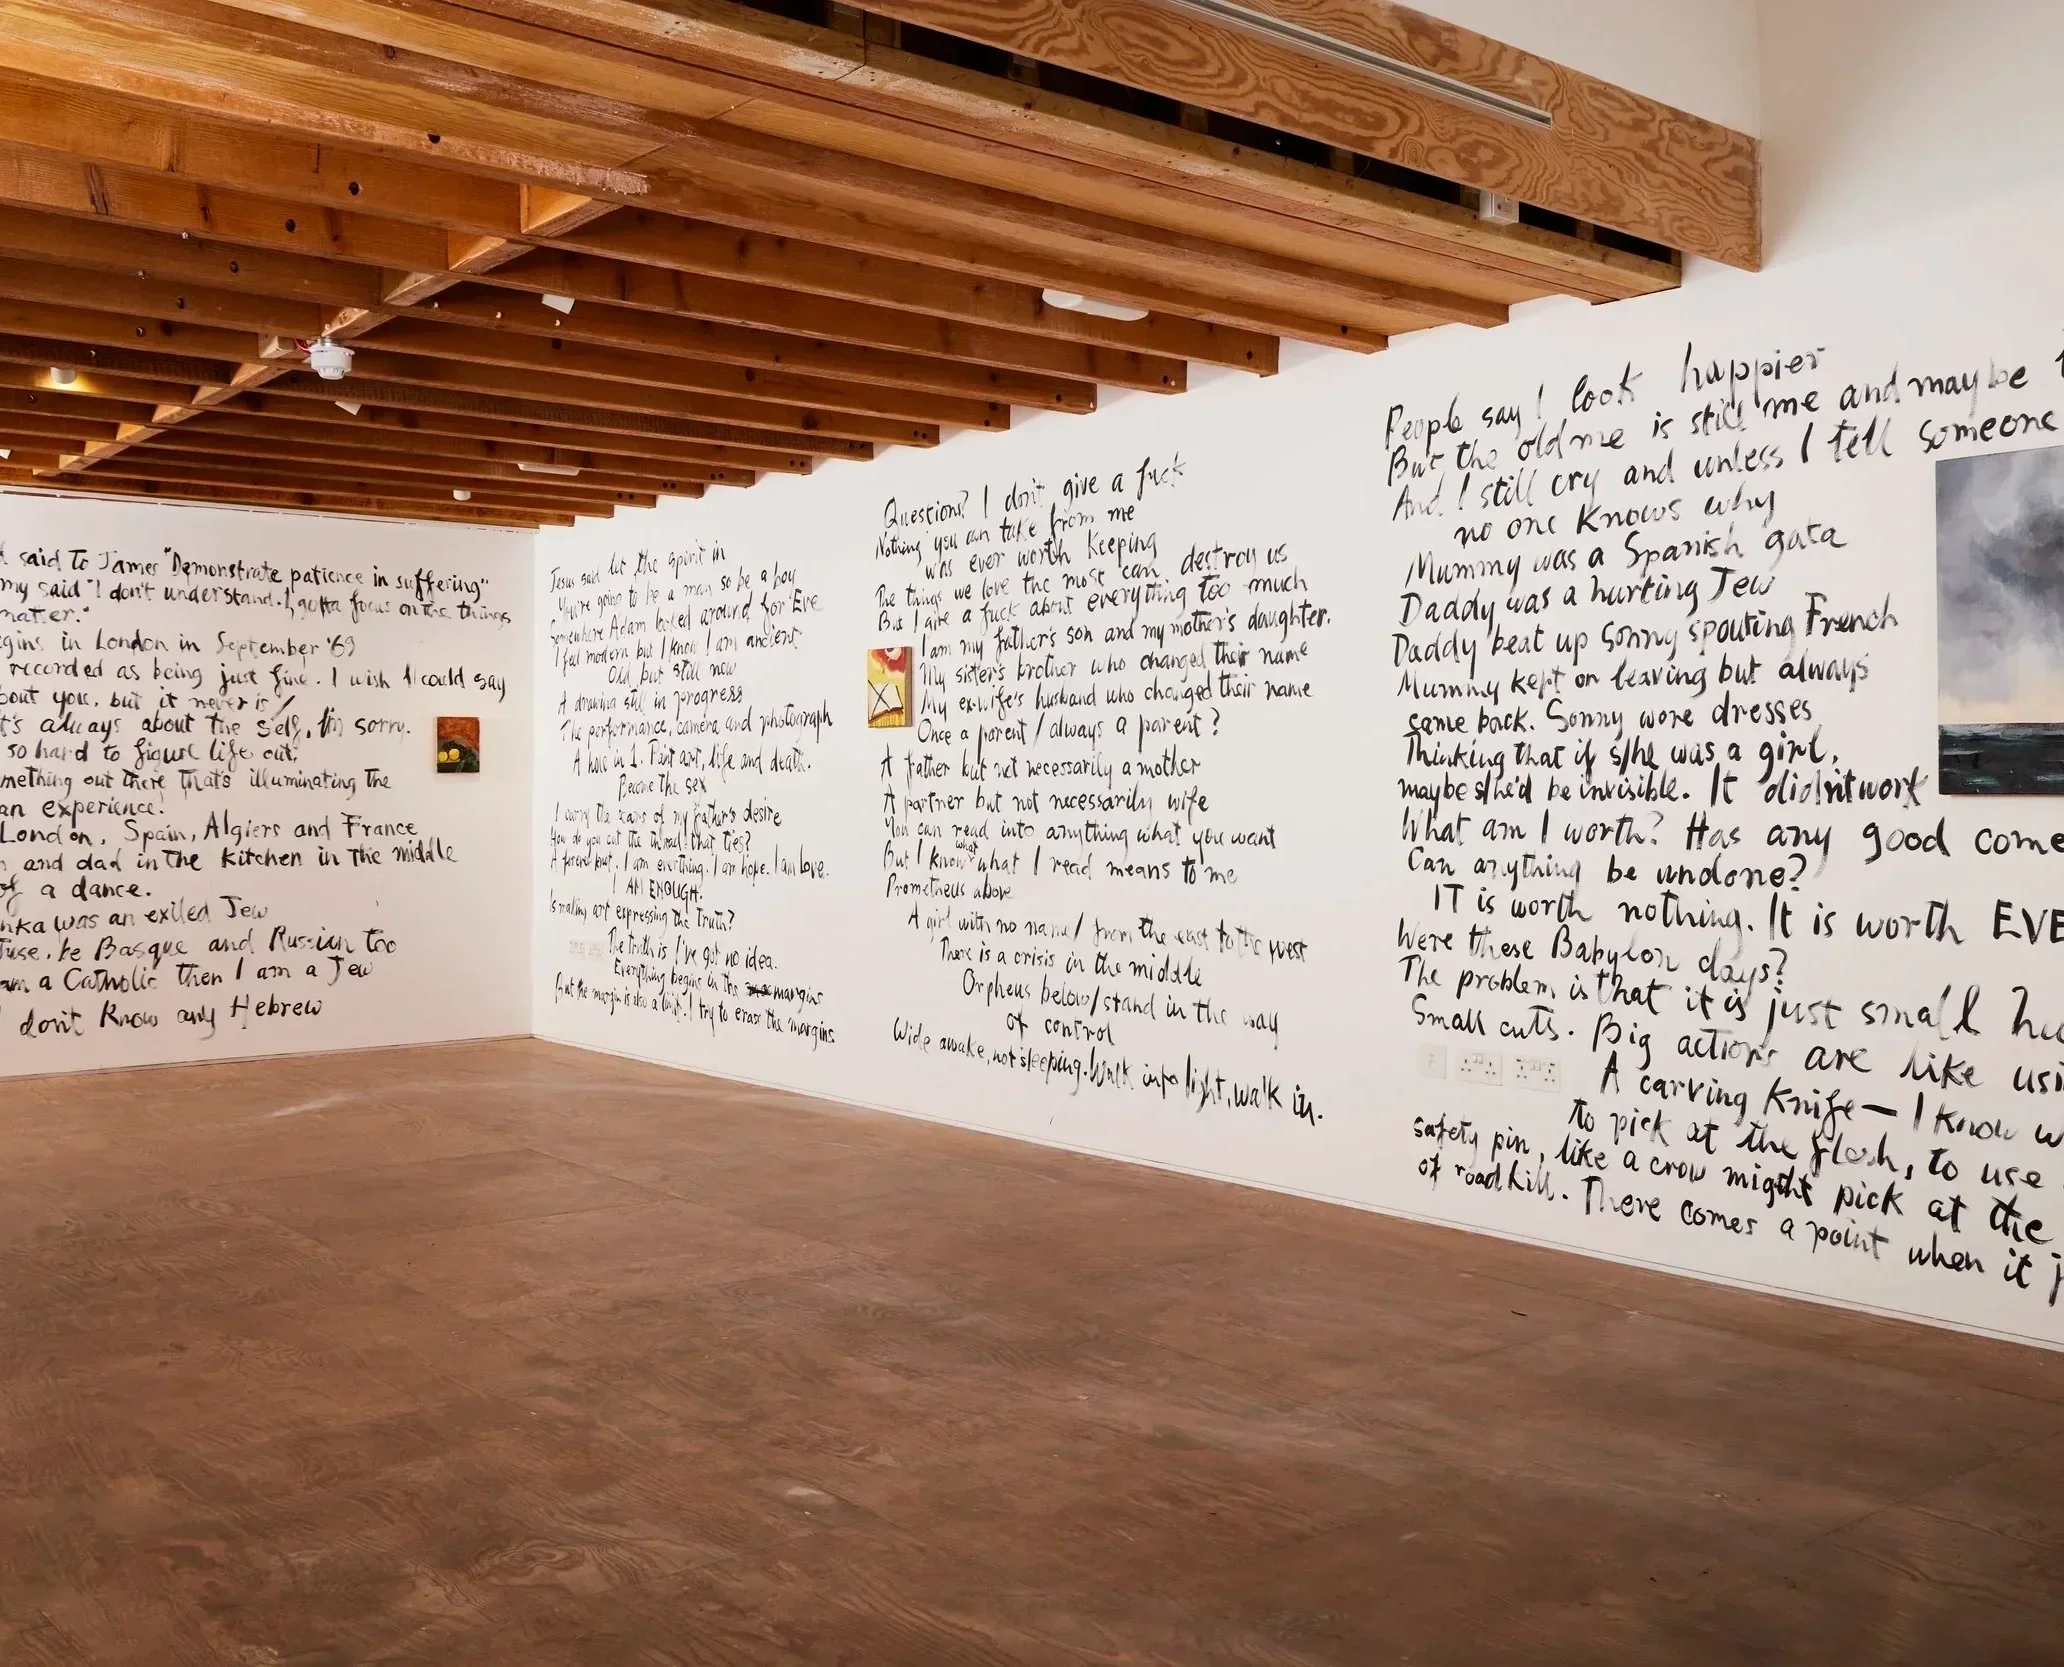 said to James "Demonstrate patience in suffering"
my said "I don't understand. I gotta focus on the things
matter."
in London in September '69
recorded as being just fine. I wish I could say
you, but it never is/
always about the Self, I'm sorry.
so hard to figure life out.
out there that's illuminating the
an experience!
London, Spain, Algiers and France
and dad in the kitchen in the middle
of a dance.
was an exiled Jew
Basque and Russian too
am a Catholic then I am a Jew
don't know any Hebrew
Jesus said let the spirit in
You're going to be a man so be a boy
Somewhere Adam looked around for Eve
I feel modern but I know I am ancient.
Old but still new
A drawing still in progress
The performance, camera and photograph
A hole in 1. Paint art, life and death.
Become the sex
I carry the scars of my father's desire
How do you cut the thread that ties?
A forever but. I am everything. I am hope. I am love.
I AM ENOUGH.
Is making art expressing the truth?
The truth is I've got no idea.
Everything begins in the margins
But the margin is also a limit. I try to erase the margins.
Questions? I don't give a fuck
Nothing you can take from me
was ever worth keeping
The things we love the most can destroy us
But I give a fuck about everything too much
I am my father's son and my mother's daughter.
My sister's brother who changed their name
My ex-wife's husband who changed their name
Once a parent / always a parent?
A father but not necessarily a mother
A partner but not necessarily wife
You can read into anything what you want
But I know what what I read means to me
Prometheus above
A girl with no name/ from the east to the west
There is a crisis in the middle
Orpheus below/stand in the way
of control
Wide awake, not sleeping. Walk into light, walk in.
People say I look happier
But the old me is still me and maybe
And I still cry and unless I tell someone
no one knows why
Mummy was a Spanish gata
Daddy was a hurting Jew
Daddy beat up Sonny spouting French
Mummy kept on leaving but always
came back. Sonny wore dresses
Thinking that if s/he was a girl,
maybe s/he'd be invisible. It didn't work
What am I worth? Has any good come
Can anything be undone?
IT is worth nothing. It is worth EVE
Were these Babylon days?
The problem is that it is just small
Small cuts. Big actions are like
A carving knife — I know
to pick at the flesh, to use
safety pin, like a crow might pick at the
of roadkill. There comes a point when it